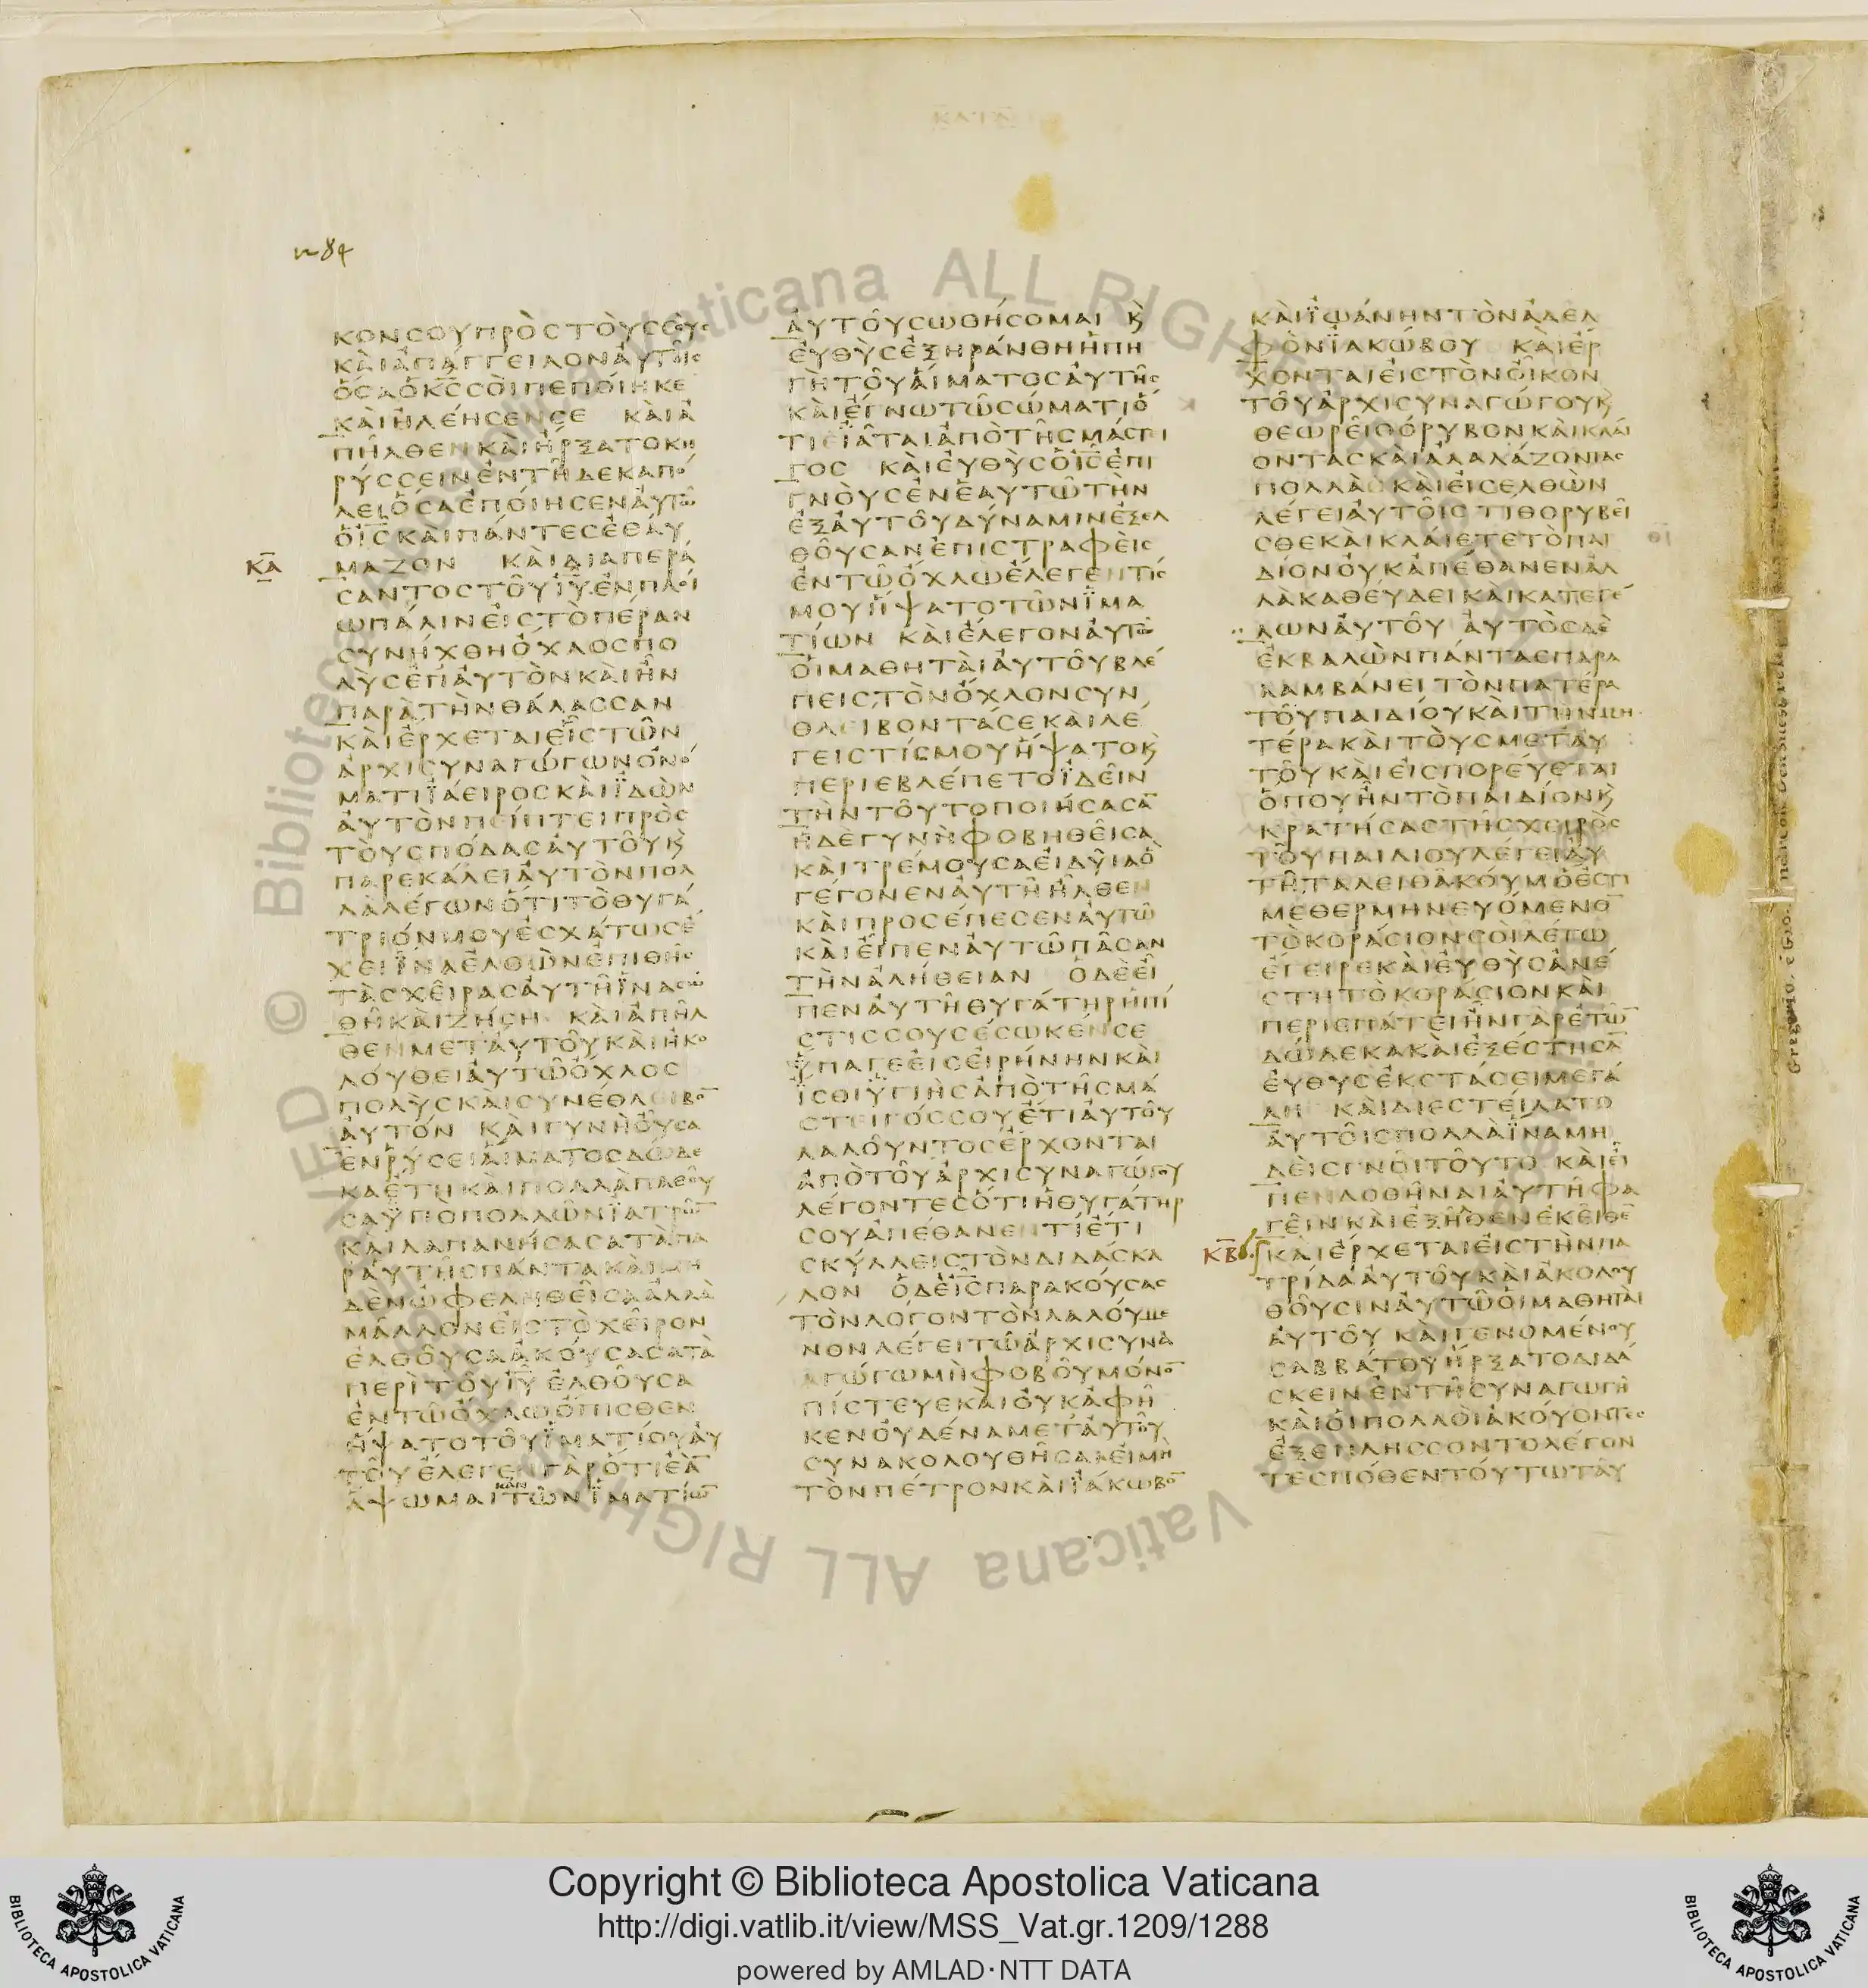 ΚΑΤΑ
1284
ΚΟΝϹΟΥΠΡΟϹΤΟΥϹϹΟΥϹ
ΚΑΙΑΠΑΓΓΕΙΛΟΝΑΥΤΟΙϹ
ΟϹΑΟΚ̅ϹϹΟΙΠΕΠΟΙΗΚΕ
ΚΑΙΗΛΕΗϹΕΝϹΕ ΚΑΙΑ
ΠΗΛΘΕΝΚΑΙΗΡΞΑΤΟΚΗ
ΡΥϹϹΕΙΝΕΝΤΗΔΕΚΑΠΟ
ΛΕΙΟϹΑΕΠΟΙΗϹΕΝΑΥΤΩ
ΟΙ̅ϹΚΑΙΠΑΝΤΕϹΕΘΑΥ
ΚΑ̅ ΜΑΖΟΝ ΚΑΙΔΙΑΠΕΡΑ
ϹΑΝΤΟϹΤΟΥΙΥ̅ΕΝΠΛΟΙ
ΩΠΑΛΙΝΕΙϹΤΟΠΕΡΑΝ
ϹΥΝΗΧΘΗΟΧΛΟϹΠΟ
ΛΥϹΕΠΑΥΤΟΝΚΑΙΗΝ
ΠΑΡΑΤΗΝΘΑΛΑϹϹΑΝ
ΚΑΙΕΡΧΕΤΑΙΕΙϹΤΩΝ
ΑΡΧΙϹΥΝΑΓΩΓΩΝΟΝΟ
ΜΑΤΙΪΑΕΙΡΟϹΚΑΙΪΔΩΝ
ΑΥΤΟΝΠΕΙΠΤΕΙΠΡΟϹ
ΤΟΥϹΠΟΔΑϹΑΥΤΟΥΚ
ΠΑΡΕΚΑΛΕΙΑΥΤΟΝΠΟΛ
ΛΑΛΕΓΩΝΟΤΙΤΟΘΥΓΑ
ΤΡΙΟΝΜΟΥΕϹΧΑΤΩϹΕ
ΧΕΙΪΝΑΕΛΘΩΝΕΠΙΘΗϹ
ΤΑϹΧΕΙΡΑϹΑΥΤΗΪΝΑϹΩ
ΘΗΚΑΙΖΗϹΗ ΚΑΙΑΠΗΛ
ΘΕΝΜΕΤΑΥΤΟΥΚΑΙΗΚΟ
ΛΟΥΘΕΙΑΥΤΩΟΧΛΟϹ
ΠΟΛΥϹΚΑΙϹΥΝΕΘΛΕΙΒΟ̅
ΑΥΤΟΝ ΚΑΙΓΥΝΗΟΥϹΑ
ΕΝΡΥϹΕΙΑΙΜΑΤΟϹΔΩΔΕ
ΚΑΕΤΗΚΑΙΠΟΛΛΑΠΑΘΟΥ
ϹΑΫΠΟΠΟΛΛΩΝΪΑΤΡΩ̅
ΚΑΙΔΑΠΑΝΗϹΑϹΑΤΑΠΑ
ΡΑΥΤΗϹΠΑΝΤΑΚΑΙΜΗ
ΔΕΝΩΦΕΛΗΘΕΙϹΑΑΛΛΑ
ΜΑΛΛΟΝΕΙϹΤΟΧΕΙΡΟΝ
ΕΛΘΟΥϹΑΑΚΟΥϹΑϹΑΤΑ
ΠΕΡΙΤΟΥΙΥ̅ ΕΛΘΟΥϹΑ
ΕΝΤΩΟΧΛΩΟΠΙϹΘΕΝ
ΗΨΑΤΟΤΟΥΪΜΑΤΙΟΥΑΥ
ΤΟΥΕΛΕΓΕΝΓΑΡΟΤΙΕΑ̅
ΚΑΝ
ΑΨΩΜΑΙΤΩΝΪΜΑΤΙΩ̅
ΑΥΤΟΥϹΩΘΗϹΟΜΑΙ Κ
ΕΥΘΥϹΕΞΗΡΑΝΘΗΗΠΗ
ΓΗΤΟΥΑΙΜΑΤΟϹΑΥΤΗϹ
ΚΑΙΕΓΝΩΤΩϹΩΜΑΤΙΟ
ΤΙΕΙΑΤΑΙΑΠΟΤΗϹΜΑϹΤΙ
ΓΟϹ ΚΑΙΕΥΘΥϹΟΙ̅ϹΕΠΙ
ΓΝΟΥϹΕΝΕΑΥΤΩΤΗΝ
ΕΞΑΥΤΟΥΔΥΝΑΜΙΝΕΞΕΛ
ΘΟΥϹΑΝΕΠΙϹΤΡΑΦΕΙϹ
ΕΝΤΩΟΧΛΩΕΛΕΓΕΝΤΙϹ
ΜΟΥΗΨΑΤΟΤΩΝΪΜΑ
ΤΙΩΝ ΚΑΙΕΛΕΓΟΝΑΥΤΩ
ΟΙΜΑΘΗΤΑΙΑΥΤΟΥΒΛΕ
ΠΕΙϹΤΟΝΟΧΛΟΝϹΥΝ
ΘΛΕΙΒΟΝΤΑϹΕΚΑΙΛΕ
ΓΕΙϹΤΙϹΜΟΥΗΨΑΤΟΚ
ΠΕΡΙΕΒΛΕΠΕΤΟΪΔΕΙΝ
ΤΗΝΤΟΥΤΟΠΟΙΗϹΑϹΑ̅
ΗΔΕΓΥΝΗΦΟΒΗΘΕΙϹΑ
ΚΑΙΤΡΕΜΟΥϹΑΕΙΔΥΙΑΟ
ΓΕΓΟΝΕΝΑΥΤΗΗΛΘΕΝ
ΚΑΙΠΡΟϹΕΠΕϹΕΝΑΥΤΩ
ΚΑΙΕΙΠΕΝΑΥΤΩΠΑϹΑΝ
ΤΗΝΑΛΗΘΕΙΑΝ ΟΔΕΕΙ
ΠΕΝΑΥΤΗΘΥΓΑΤΗΡΗΠΙ
ϹΤΙϹϹΟΥϹΕϹΩΚΕΝϹΕ
ΫΠΑΓΕΕΙϹΕΙΡΗΝΗΝΚΑΙ
ΪϹΘΙΫΓΙΗϹΑΠΟΤΗϹΜΑ
ϹΤΕΙΓΟϹϹΟΥΕΤΙΑΥΤΟΥ
ΛΑΛΟΥΝΤΟϹΕΡΧΟΝΤΑΙ
ΑΠΟΤΟΥΑΡΧΙϹΥΝΑΓΩΓΟΥ
ΛΕΓΟΝΤΕϹΟΤΙΗΘΥΓΑΤΗΡ
ϹΟΥΑΠΕΘΑΝΕΝΤΙΕΤΙ
ϹΚΥΛΛΕΙϹΤΟΝΔΙΔΑϹΚΑ
ΛΟΝ ΟΔΕΙ̅ϹΠΑΡΑΚΟΥϹΑϹ
ΤΟΝΛΟΓΟΝΤΟΝΛΑΛΟΥΜΕ
ΝΟΝΛΕΓΕΙΤΩΑΡΧΙϹΥΝΑ
ΓΩΓΩΜΗΦΟΒΟΥΜΟΝΟ̅
ΠΙϹΤΕΥΕΚΑΙΟΥΚΑΦΗ
ΚΕΝΟΥΔΕΝΑΜΕΤΑΥΤΟΥ
ϹΥΝΑΚΟΛΟΥΘΗϹΑΙΕΙΜΗ
ΤΟΝΠΕΤΡΟΝΚΑΙΪΑΚΩΒΟ̅
ΚΑΙΪΩΑΝΗΝΤΟΝΑΔΕΛ
ΦΟΝΪΑΚΩΒΟΥ ΚΑΙΕΡ
ΧΟΝΤΑΙΕΙϹΤΟΝΟΙΚΟΝ
ΤΟΥΑΡΧΙϹΥΝΑΓΩΓΟΥΚ
ΘΕΩΡΕΙΘΟΡΥΒΟΝΚΑΙΚΛΑΙ
ΟΝΤΑϹΚΑΙΑΛΑΛΑΖΟΝΤΑϹ
ΠΟΛΛΑ ΚΑΙΕΙϹΕΛΘΩΝ
ΛΕΓΕΙΑΥΤΟΙϹ ΤΙΘΟΡΥΒΕΙ
ϹΘΕΚΑΙΚΛΑΙΕΤΕΤΟΠΑΙ
ΔΙΟΝΟΥΚΑΠΕΘΑΝΕΝΑΛ
ΛΑΚΑΘΕΥΔΕΙΚΑΙΚΑΤΕΓΕ
ΛΩΝΑΥΤΟΥ ΑΥΤΟϹΔΕ
ΕΚΒΑΛΩΝΠΑΝΤΑϹΠΑΡΑ
ΛΑΜΒΑΝΕΙΤΟΝΠΑΤΕΡΑ
ΤΟΥΠΑΙΔΙΟΥΚΑΙΤΗΝΜΗ
ΤΕΡΑΚΑΙΤΟΥϹΜΕΤΑΥ
ΤΟΥΚΑΙΕΙϹΠΟΡΕΥΕΤΑΙ
ΟΠΟΥΗΝΤΟΠΑΙΔΙΟΝΚ
ΚΡΑΤΗϹΑϹΤΗϹΧΕΙΡΟϹ
ΤΟΥΠΑΙΔΙΟΥΛΕΓΕΙΑΥ
ΤΗΤΑΛΕΙΘΑΚΟΥΜΟΕϹΤΙ
ΜΕΘΕΡΜΗΝΕΥΟΜΕΝΟ̅
ΤΟΚΟΡΑϹΙΟΝϹΟΙΛΕΓΩ
ΕΓΕΙΡΕΚΑΙΕΥΘΥϹΑΝΕ
ϹΤΗΤΟΚΟΡΑϹΙΟΝΚΑΙ
ΠΕΡΙΕΠΑΤΕΙΗΝΓΑΡΕΤΩ̅
ΔΩΔΕΚΑΚΑΙΕΞΕϹΤΗϹΑ̅
ΕΥΘΥϹΕΚϹΤΑϹΕΙΜΕΓΑ
ΛΗ ΚΑΙΔΙΕϹΤΕΙΛΑΤΟ
ΑΥΤΟΙϹΠΟΛΛΑΪΝΑΜΗ
ΔΕΙϹΓΝΟΙΤΟΥΤΟ ΚΑΙΕΙ
ΠΕΝΔΟΘΗΝΑΙΑΥΤΗΦΑ
ΓΕΙΝΚΑΙΕΞΗΛΘΕΝΕΚΕΙΘΕ̅
ΚΒ̅ ΚΑΙΕΡΧΕΤΑΙΕΙϹΤΗΝΠΑ
ΤΡΙΔΑΑΥΤΟΥΚΑΙΑΚΟΛΟΥ
ΘΟΥϹΙΝΑΥΤΩΟΙΜΑΘΗΤΑΙ
ΑΥΤΟΥ ΚΑΙΓΕΝΟΜΕΝΟΥ
ϹΑΒΒΑΤΟΥΗΡΞΑΤΟΔΙΔΑ
ϹΚΕΙΝΕΝΤΗϹΥΝΑΓΩΓΗ
ΚΑΙΟΙΠΟΛΛΟΙΑΚΟΥΟΝΤΕϹ
ΕΞΕΠΛΗϹϹΟΝΤΟΛΕΓΟΝ
ΤΕϹΠΟΘΕΝΤΟΥΤΩΤΑΥ
Copyright © Biblioteca Apostolica Vaticana
http://digi.vatlib.it/view/MSS_Vat.gr.1209/1288
powered by AMLAD·NTT DATA
BIBLIOTECA APOSTOLICA VATICANA
BIBLIOTECA APOSTOLICA VATICANA